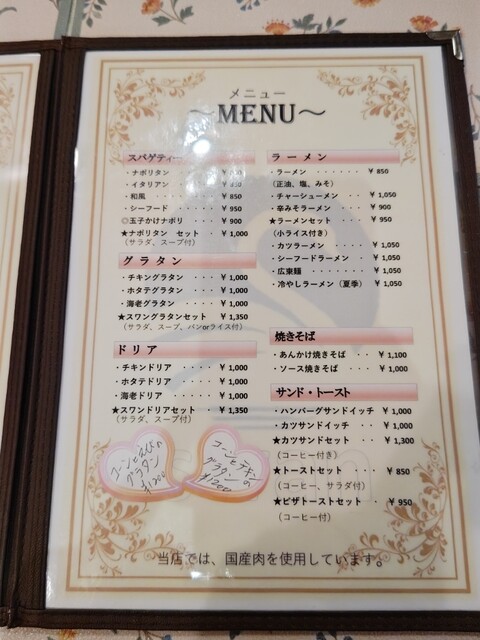 メニュー
～MENU～
スパゲティー
・ナポリタン ・・・・ ¥
・イタリアン ・・・・ ¥
・和風 ・・・・・・ ¥ 850
・シーフード ・・・・ ¥ 950
◎玉子かけナポリ ・・ ¥ 900
★ナポリタン セット ・ ¥ 1,000
（サラダ、スープ付）
グラタン
・チキングラタン ・・・ ¥ 1,000
・ホタテグラタン ・・・ ¥ 1,000
・海老グラタン ・・・・ ¥ 1,000
★スワングラタンセット ¥ 1,350
（サラダ、スープ、パンorライス付）
ドリア
・チキンドリア ・・・・ ¥ 1,000
・ホタテドリア ・・・・ ¥ 1,000
・海老ドリア ・・・・・ ¥ 1,000
★スワンドリアセット ・ ¥ 1,350
（サラダ、スープ付）
コーンとえびの
グラタン
¥1200
コーンとチキンの
グラタン
¥1200
ラーメン
・ラーメン ・・・・・・・ ¥ 850
（正油、塩、みそ）
・チャーシューメン ・・ ¥ 1,050
・辛みそラーメン ・・・ ¥ 900
★ラーメンセット ・・・ ¥ 950
（小ライス付き）
・カツラーメン ・・・・ ¥ 1,050
・シーフードラーメン ・ ¥ 1,050
・広東麺 ・・・・・・・ ¥ 1,050
・冷やしラーメン（夏季） ¥ 1,050
焼きそば
・あんかけ焼きそば ・・ ¥ 1,100
・ソース焼きそば ・・・ ¥ 1,000
サンド・トースト
・ハンバーグサンドイッチ ¥ 1,000
・カツサンドイッチ ・・ ¥ 1,000
★カツサンドセット ・・ ¥ 1,300
（コーヒー付き）
★トーストセット ・・・ ¥ 850
（コーヒー、サラダ付）
★ピザトーストセット ・ ¥ 950
（コーヒー付）
当店では、国産肉を使用しています。